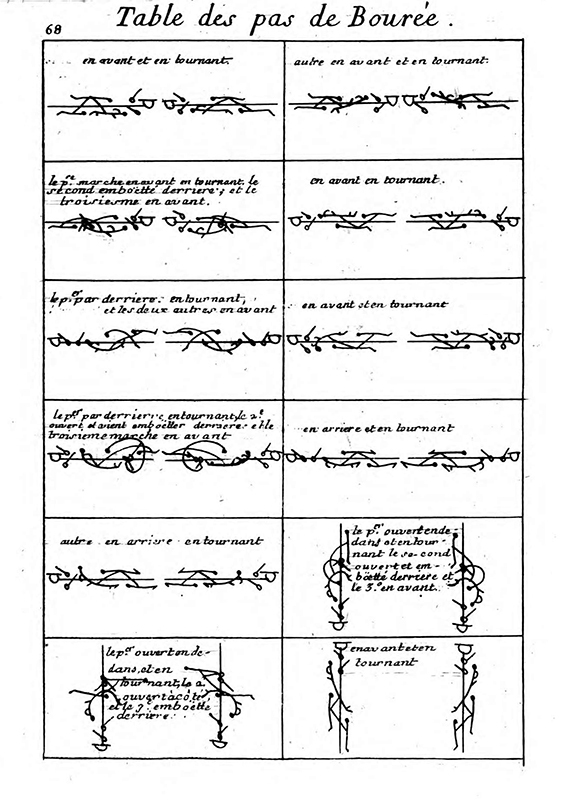 68
Table des pas de Bourée.
en avant et en tournant.
autre en avant et en tournant.
le pr. marche en avant en tournant. le
second emboëtte derriere; et le
troisiesme en avant.
en avant en tournant.
le pr. par derriere. en tournant,
et les deux autres en avant
en avant et en tournant
le pr. par derriere, en tournant, le 2e
ouvert et vient emboëtter derriere et le
troisieme marche en avant
en arriere et en tournant
autre en arriere en tournant
le pr. ouvert en de-
dans et en tour-
nant le se-cond
ouvert et em-
böette derriere et
le 3.e en avant.
le pr. ouvert en de-
dans, et en
tournant, le 2.
ouvert à côté,
et le 3. emboëtte
derriere.
en avant et en
tournant